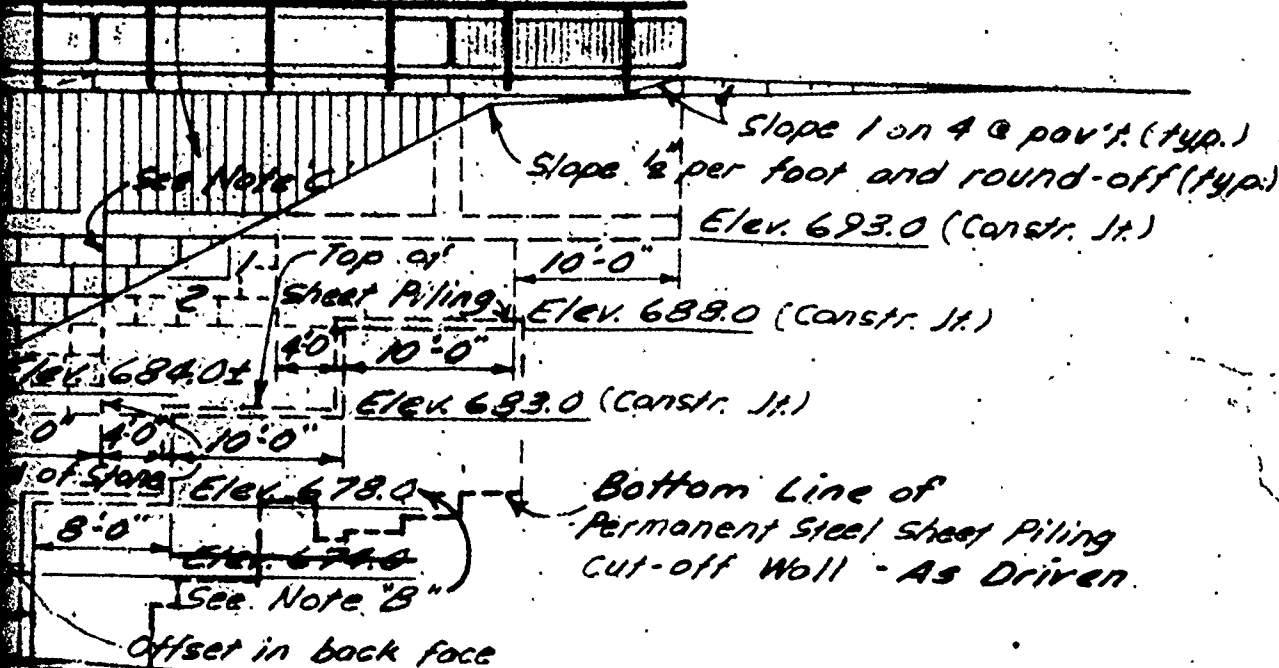 Slope 1 on 4 @ pav't. (typ.)
Slope ½" per foot and round-off (typ.)
See Note "C"
Elev. 693.0 (Constr. Jt.)
Top of
Sheet Piling
1
2
10'-0"
Elev. 688.0 (Constr. Jt.)
4'-0"
10'-0"
Elev. 684.0±
Elev. 683.0 (Constr. Jt.)
0"
4'-0"
10'-0"
of Stone
Elev. 678.0
8'-0"
Elev. 674.0
See Note "B"
Bottom Line of
Permanent Steel Sheet Piling
Cut-off Wall - As Driven
Offset in back face